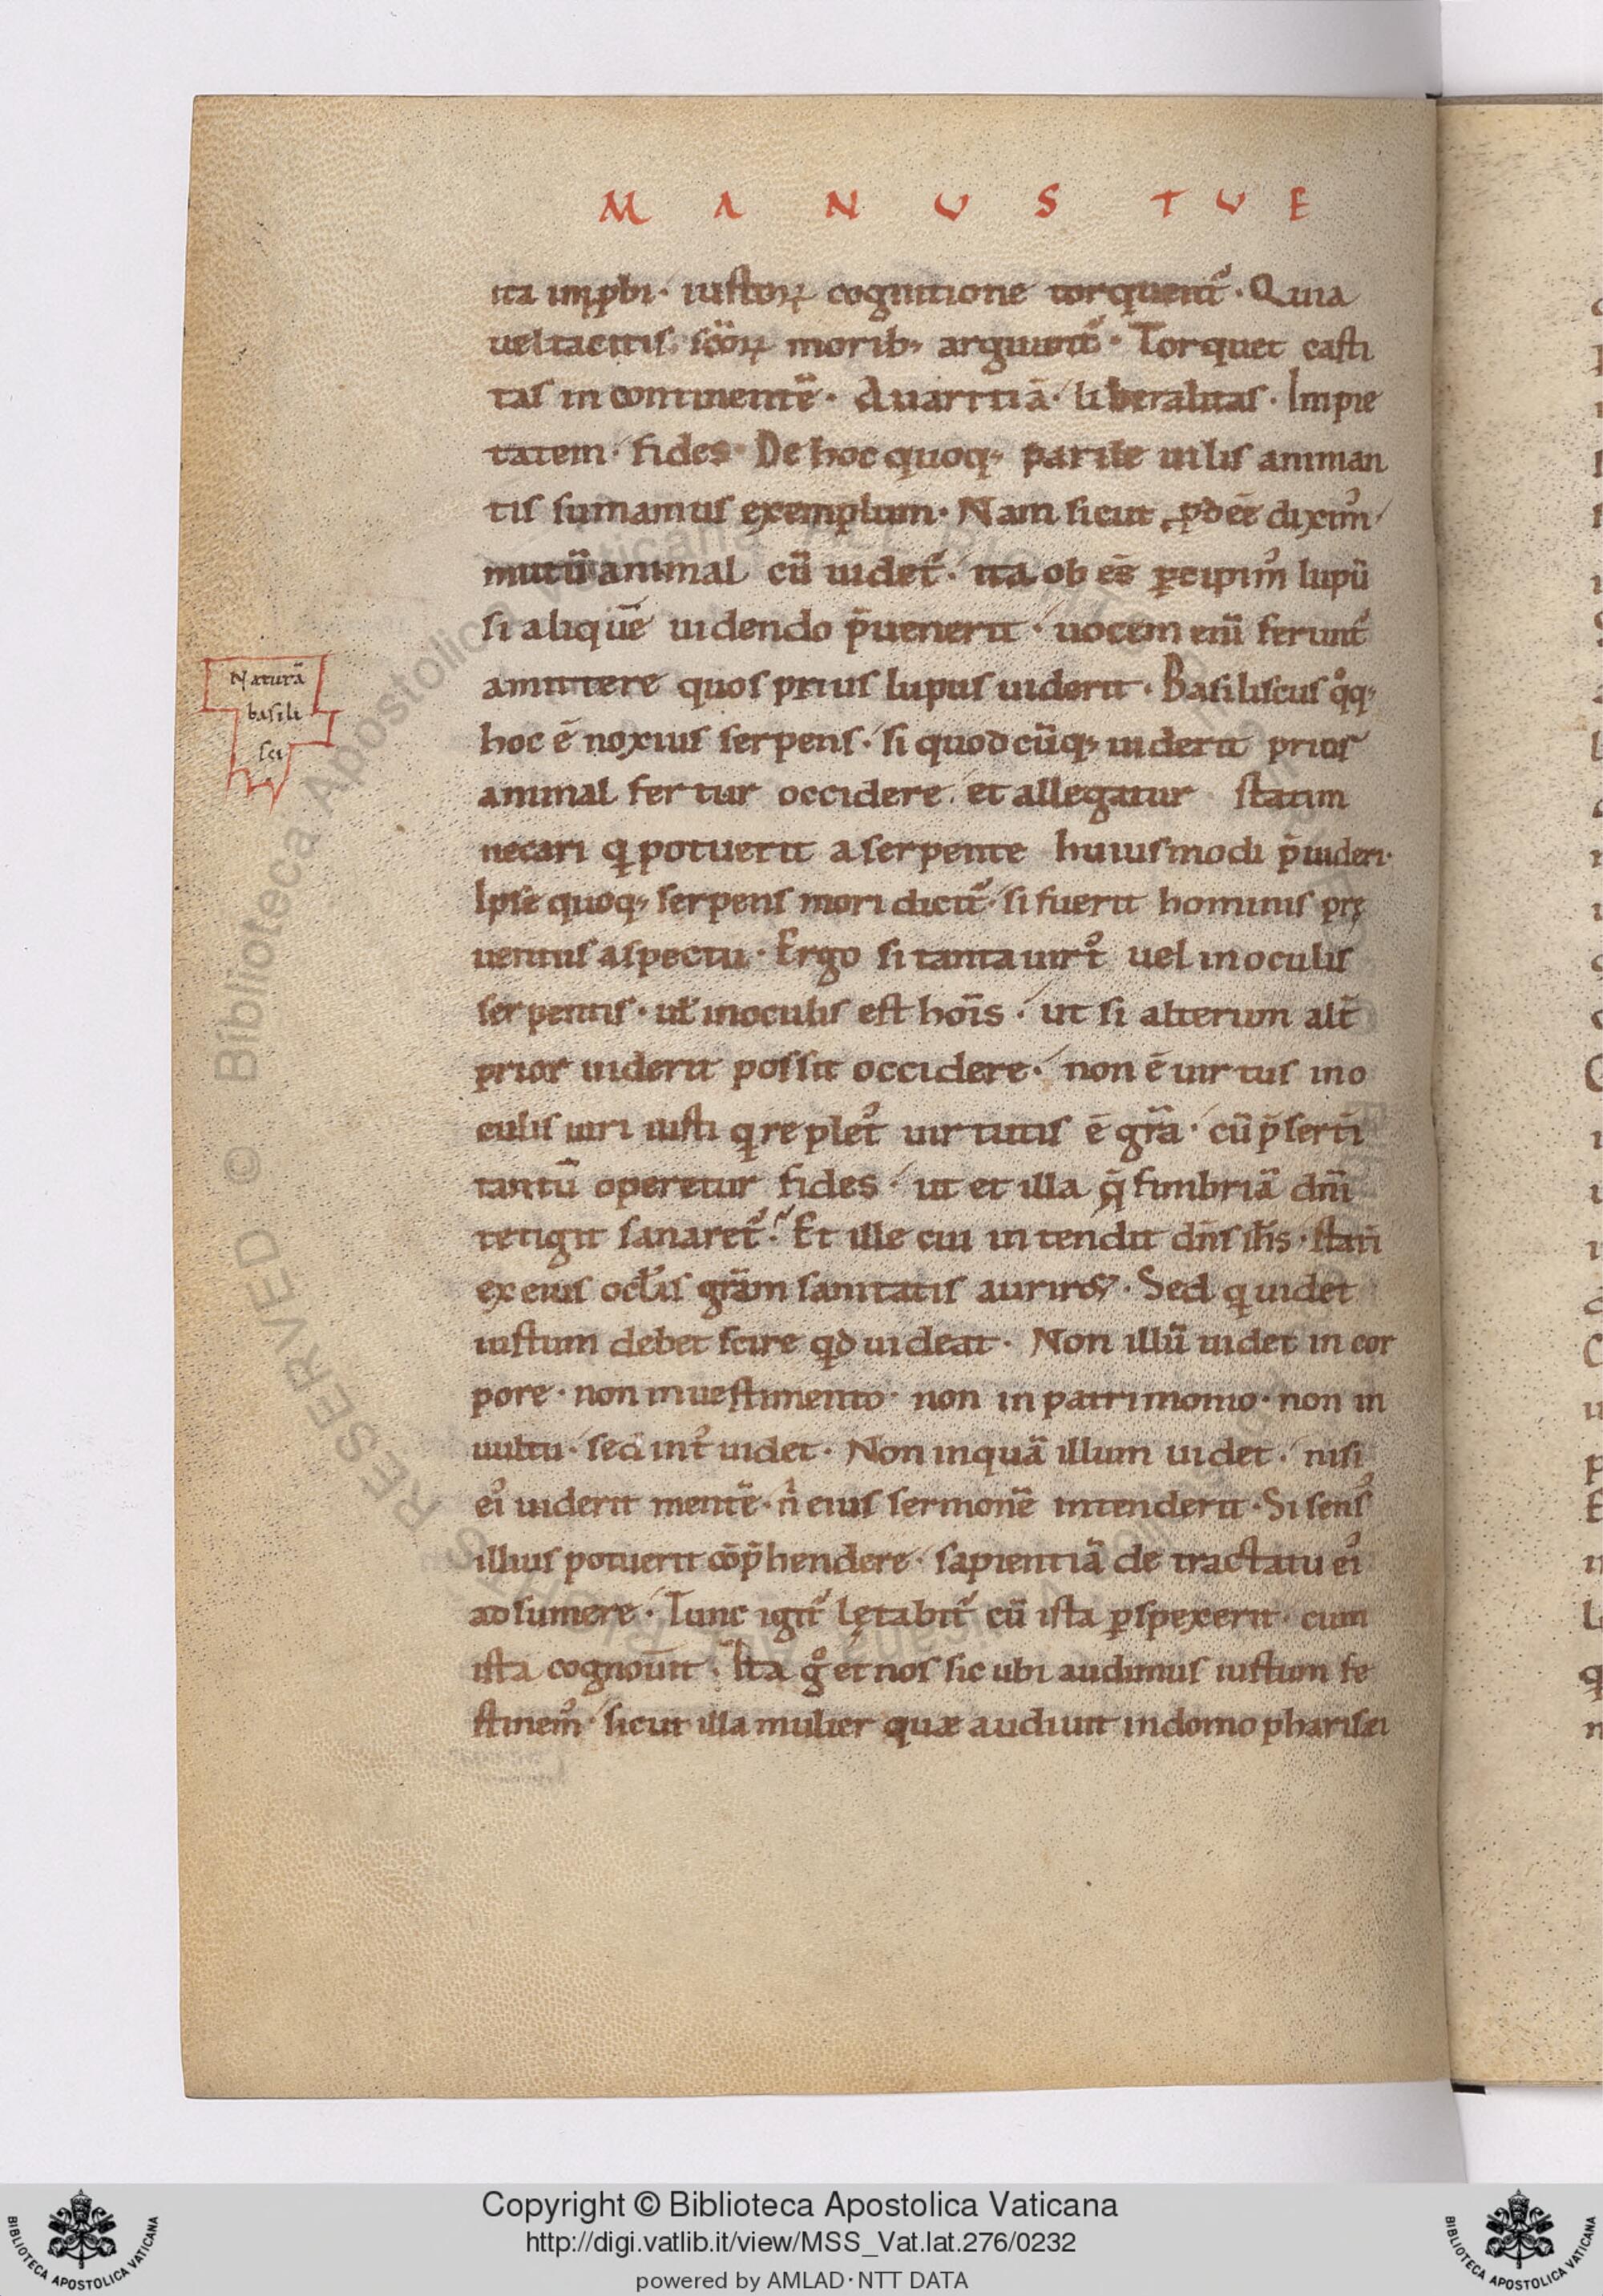 M A N U S T U E
ita imꝓbi· iustoꝝ cognitione torquent᷑· Quia
uel tacitis sc̄oꝝ morib; arguunt᷑· Torquet casti
tas incontinentē· Auaritiā· liberalitas· Impie
tatem· fides· De hoc quoq; parile uilis animan
tis sumamus exemplum· Nam sicut ꝓdeē diximꝰ
mutū animal cū uidet᷑· ita obeē ꝑcipimꝰ lupū
si aliquē uidendo p̄uenerit· uocem eni̅ ferunt᷑
amittere quos prius lupus uiderit· Basiliscus qͦq;
hoc ē noxius serpens· si quodcūq; uiderit prius
animal fertur occidere· et allegatur statim
necari q potuerit a serpente huiusmodi p̄uideri·
Ipse quoq; serpens mori dicit᷑· si fuerit hominis prę
uentus aspectu· Ergo si tanta uirtꝰ uel in oculis
serpentis· ul̄ in oculis est hoīs· ut si alterum alt̄
prior uiderit possit occidere· non ē uirtus in o
culis uiri iusti q repletꝰ uirtutis ē gr̄a· cū p̄serti̅
tantū operetur fides· ut et illa q̄ fimbriā dn̄i
tetigit sanaret᷑· Et ille cui intendit dn̄s ih̄s· stati̅
ex eius ocl̄is gr̄am sanitatis aurir&· Sed q uidet
iustum debet scire qd uideat· Non illū uidet in cor
pore· non in uestimento· non in patrimonio· non in
uultu· sed intꝰ uidet· Non inquā illum uidet· nisi
eiꝰ uiderit mentē· n̄ eius sermonē intenderit· Si sensꝰ
illius potuerit cōp̄hendere· sapientiā de tractatu eiꝰ
adsumere· Tunc igit᷑ lętabit᷑ cū ista ꝑspexerit· cum
ista cognouit· Ita gͦ et nos sic ubi audimus iustum fe
stinemꝰ· sicut illa mulier quæ audiuit in domo pharisei
Naturā
basili
sci
© Biblioteca Apostolica Vaticana ALL RIGHTS RESERVED
Copyright © Biblioteca Apostolica Vaticana
http://digi.vatlib.it/view/MSS_Vat.lat.276/0232
powered by AMLAD·NTT DATA
BIBLIOTECA APOSTOLICA VATICANA
BIBLIOTECA APOSTOLICA VATICANA